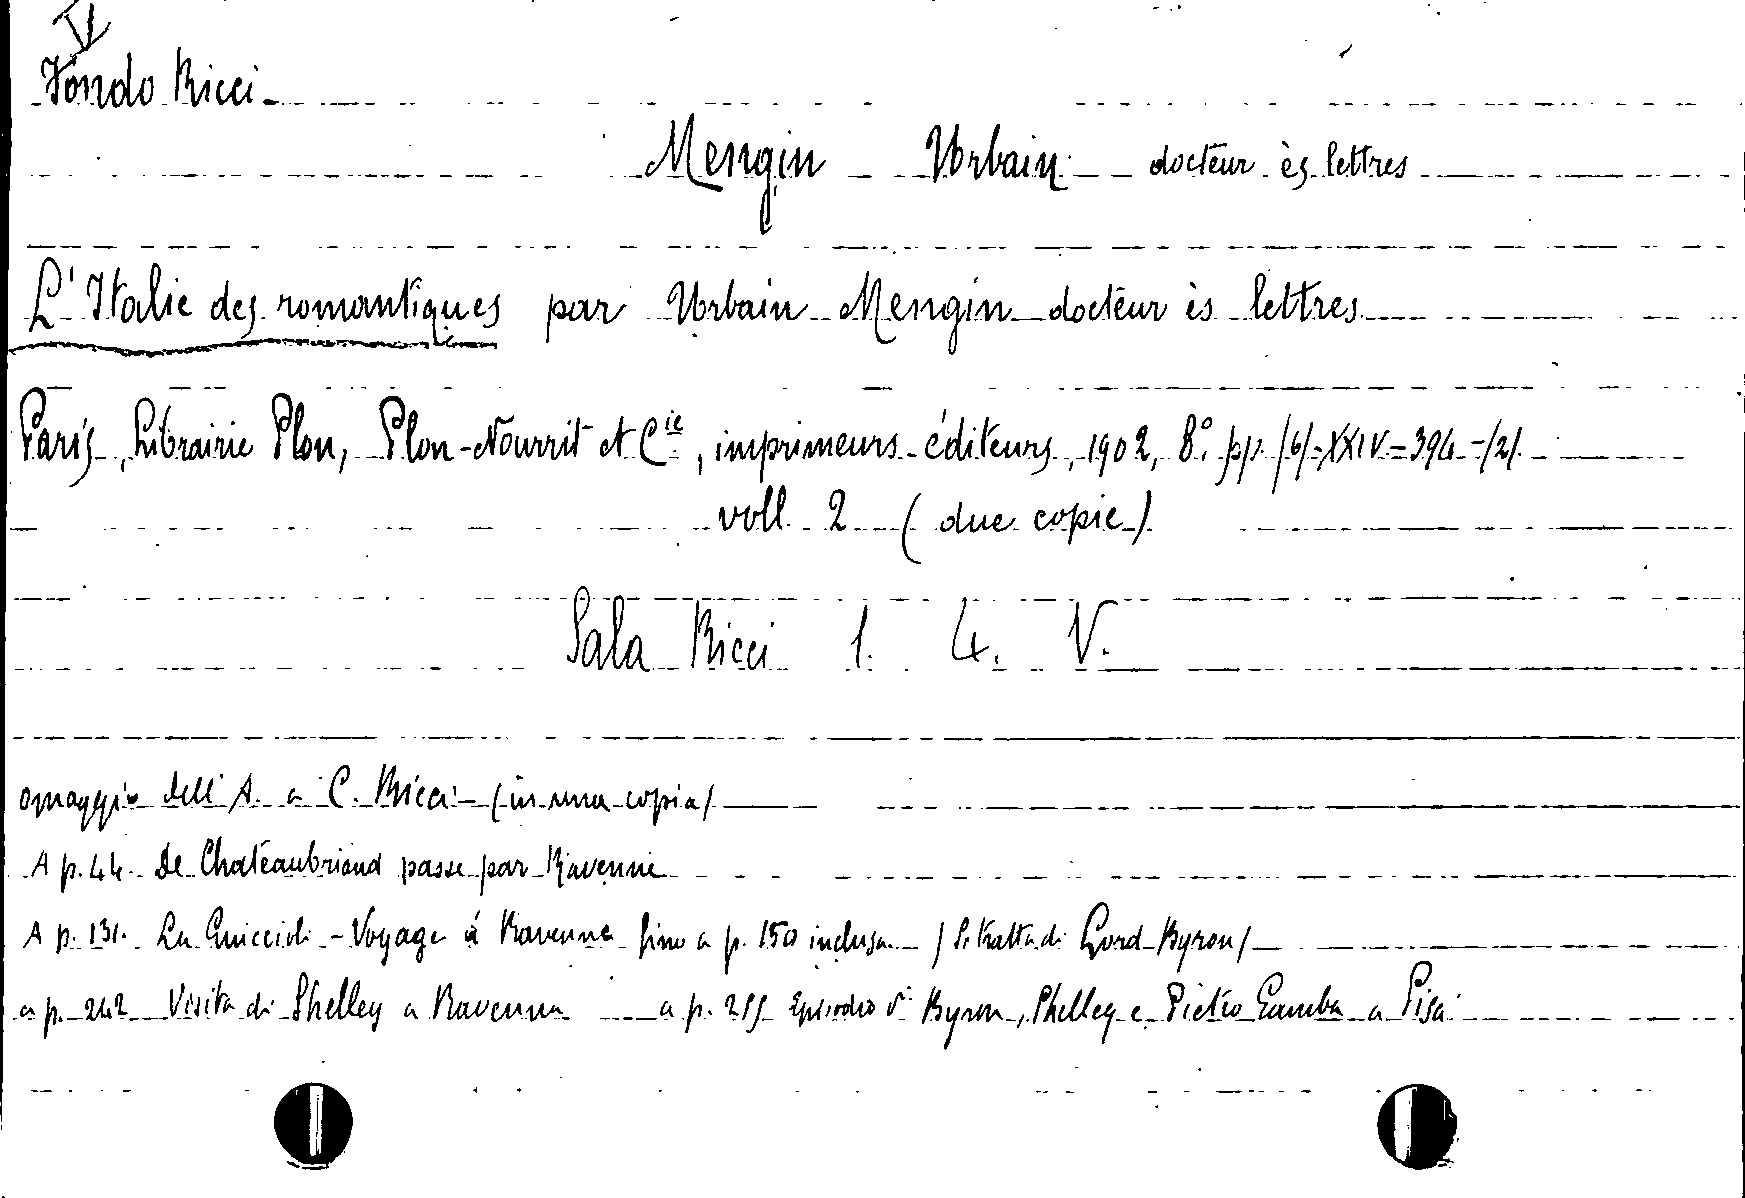 Fondo Ricci
Mengin Urbain docteur ès lettres
L'Italie des romantiques par Urbain Mengin docteur ès lettres
Paris, Librairie Plon, Plon-Nourrit et Cie, imprimeurs-éditeurs, 1902, 8° pp. /6/-XXIV-394-/2/.
voll. 2 (due copie)
Sala Ricci 1. 4. V.
omaggio dell'A. a C. Ricci (in una copia)
A p. 44. De Chateaubriand passe par Ravenne
A p. 131. La Guiccioli - Voyage à Ravenne fino a p. 150 inclusa (Si tratta di Lord Byron)
a p. 242 Visita di Shelley a Ravenna a p. Episodio di Byron, Shelley e Pietro Gamba a Pisa